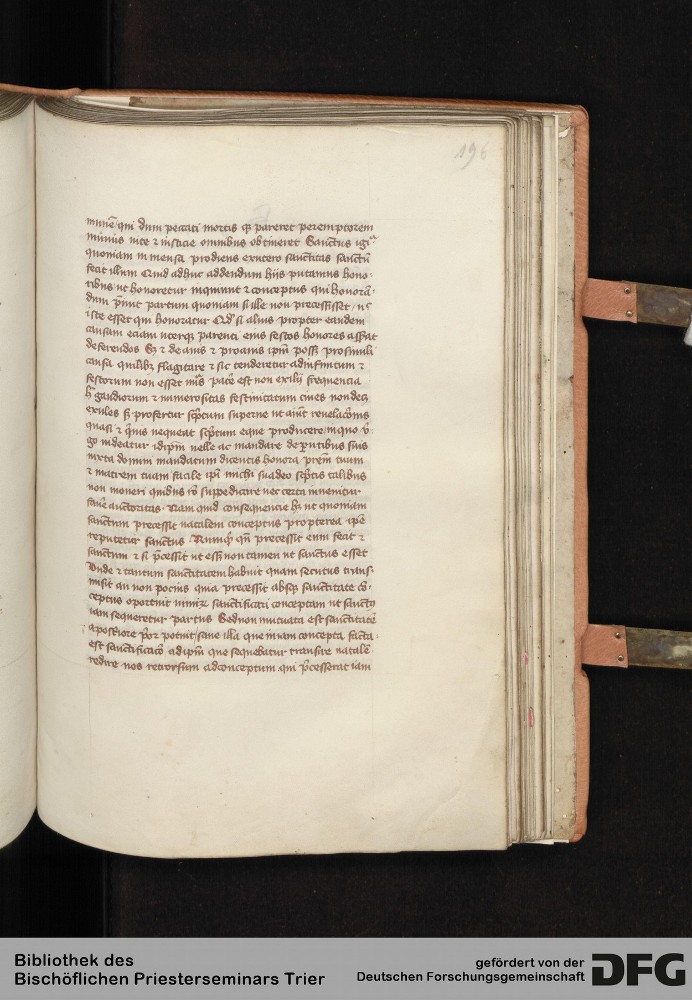 196
munē qui dum peccati mortis qz pareret peremptorem
munus uite et iusticie omnibus obtineret Sanctus igit᷑
quoniam in mensa prodiens ex utero sanctitas sanctū
fecit illum Quid adhuc addendum hijs putamus hono-
ribus ut honoretur inquiunt et conceptus qui honorā-
dum p̄uit partum quoniam si ille non precessisset / nec
iste esset qui honoratur Qd si alius propter eandem
causam eciam utrique parenti eius festos honores asserat
deferendos Sz et de auis et proauis ip̄m possz pro simili
causa quilibz flagitare et sic tenderetur ad infinitum et
festorum non esset nūs patrie est non exilij frequencia
hec gaudiorum et numerositas festiuitatum ciues non decz
exules sz profertur scptum superne ut aiūt reuelacōnis
quasi et quis nequeat scptum eque producere in quo v̄-
go uideatur idip̄m uelle ac mandare de parentibus suis
iuxta domini mandatum dicentis honora prēm tuum
et matrem tuam facile ip̄e michi suadeo scptis talibus
non moueri quibus rō suppeditare nec certa inuenitur
fauere auctoritas Nam quid consequencie hz ut quoniam
sanctum precessit natalem conceptus propterea ip̄e
reputetur sanctus Numqz quia precessit eum fecit et
sanctum et si p̄cessit ut essz non tamen ut sanctus esset
Unde et tantum sanctitatem habuit quam secuturo trans-
misit an non pocius quia precessit absqz sanctitate cō-
ceptus oportuit nimirz sanctificari conceptam ut sanctus
iam sequeretur partus Sed non mutuata est sanctitatē
a posteriore prior potuit sane illa que in iam concepta facta
est sanctificacō ad ip̄m que sequebatur transire natalē
redire uero retrorsum ad conceptum qui p̄cesserat iam
Bibliothek des
Bischöflichen Priesterseminars Trier
gefördert von der
Deutschen Forschungsgemeinschaft
DFG